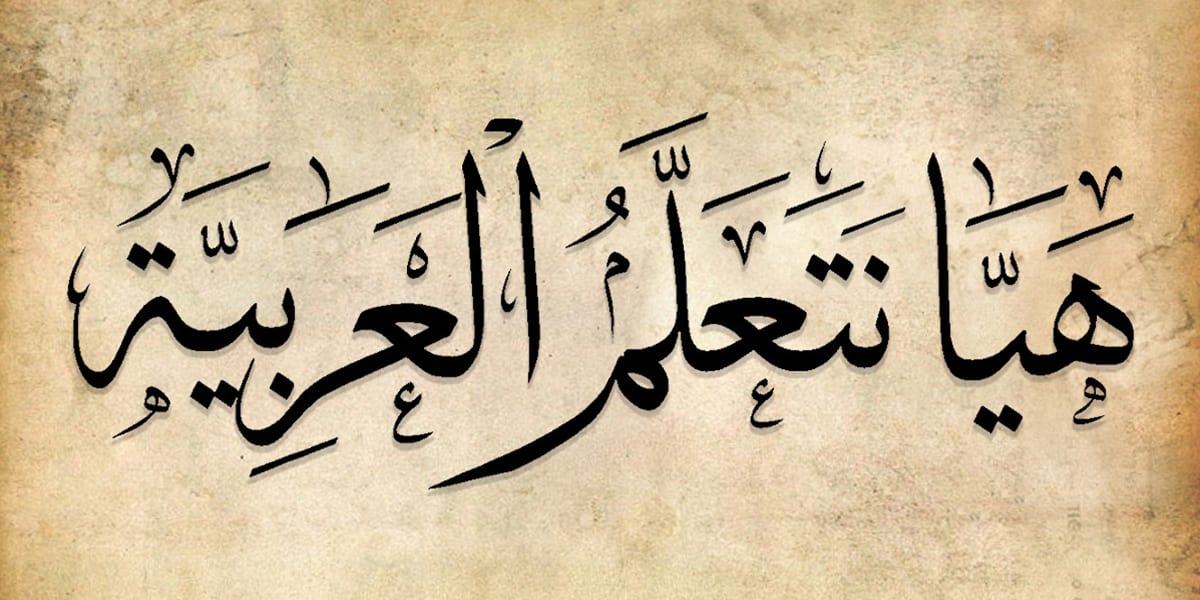 هَيَّا نَتَعَلَّمُ الْعَرَبِيَّةَ